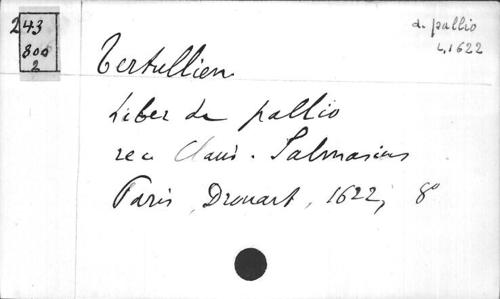 243
800
2
d. pallio
L, 1622
Tertullien
Liber de pallio
rec Claud. Salmasius
Paris, Drouart, 1622, 8°